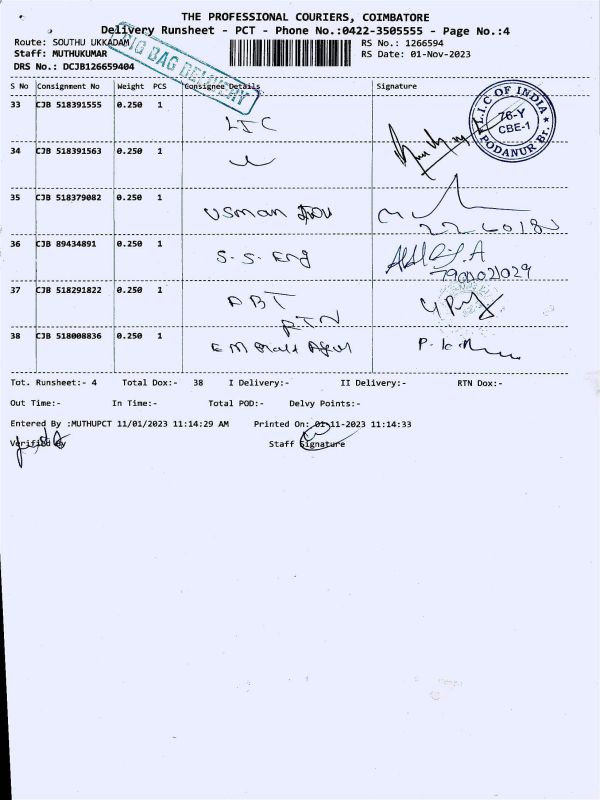 THE PROFESSIONAL COURIERS, COIMBATORE
Delivery Runsheet - PCT - Phone No.:0422-3505555 - Page No.:4
Route: SOUTHU UKKADAM
RS No.: 1266594
Staff: MUTHUKUMAR
RS Date: 01-Nov-2023
DRS No.: DCJB126659404
BIG BAG DELIVERY
S No Consignment No Weight PCS Consignee Details Signature
33 CJB 518391555 0.250 1 LIC
L.I.C OF INDIA
76-Y
CBE-1
PODANUR Br.
34 CJB 518391563 0.250 1
35 CJB 518379082 0.250 1 Usman
36 CJB 89434891 0.250 1 S.S. Eng
37 CJB 518291822 0.250 1 DBT
RTN
38 CJB 518008836 0.250 1
Tot. Runsheet:- 4 Total Dox:- 38 I Delivery:- II Delivery:- RTN Dox:-
Out Time:- In Time:- Total POD:- Delvy Points:-
Entered By :MUTHUPCT 11/01/2023 11:14:29 AM Printed On: 01-11-2023 11:14:33
Verified By Staff Signature